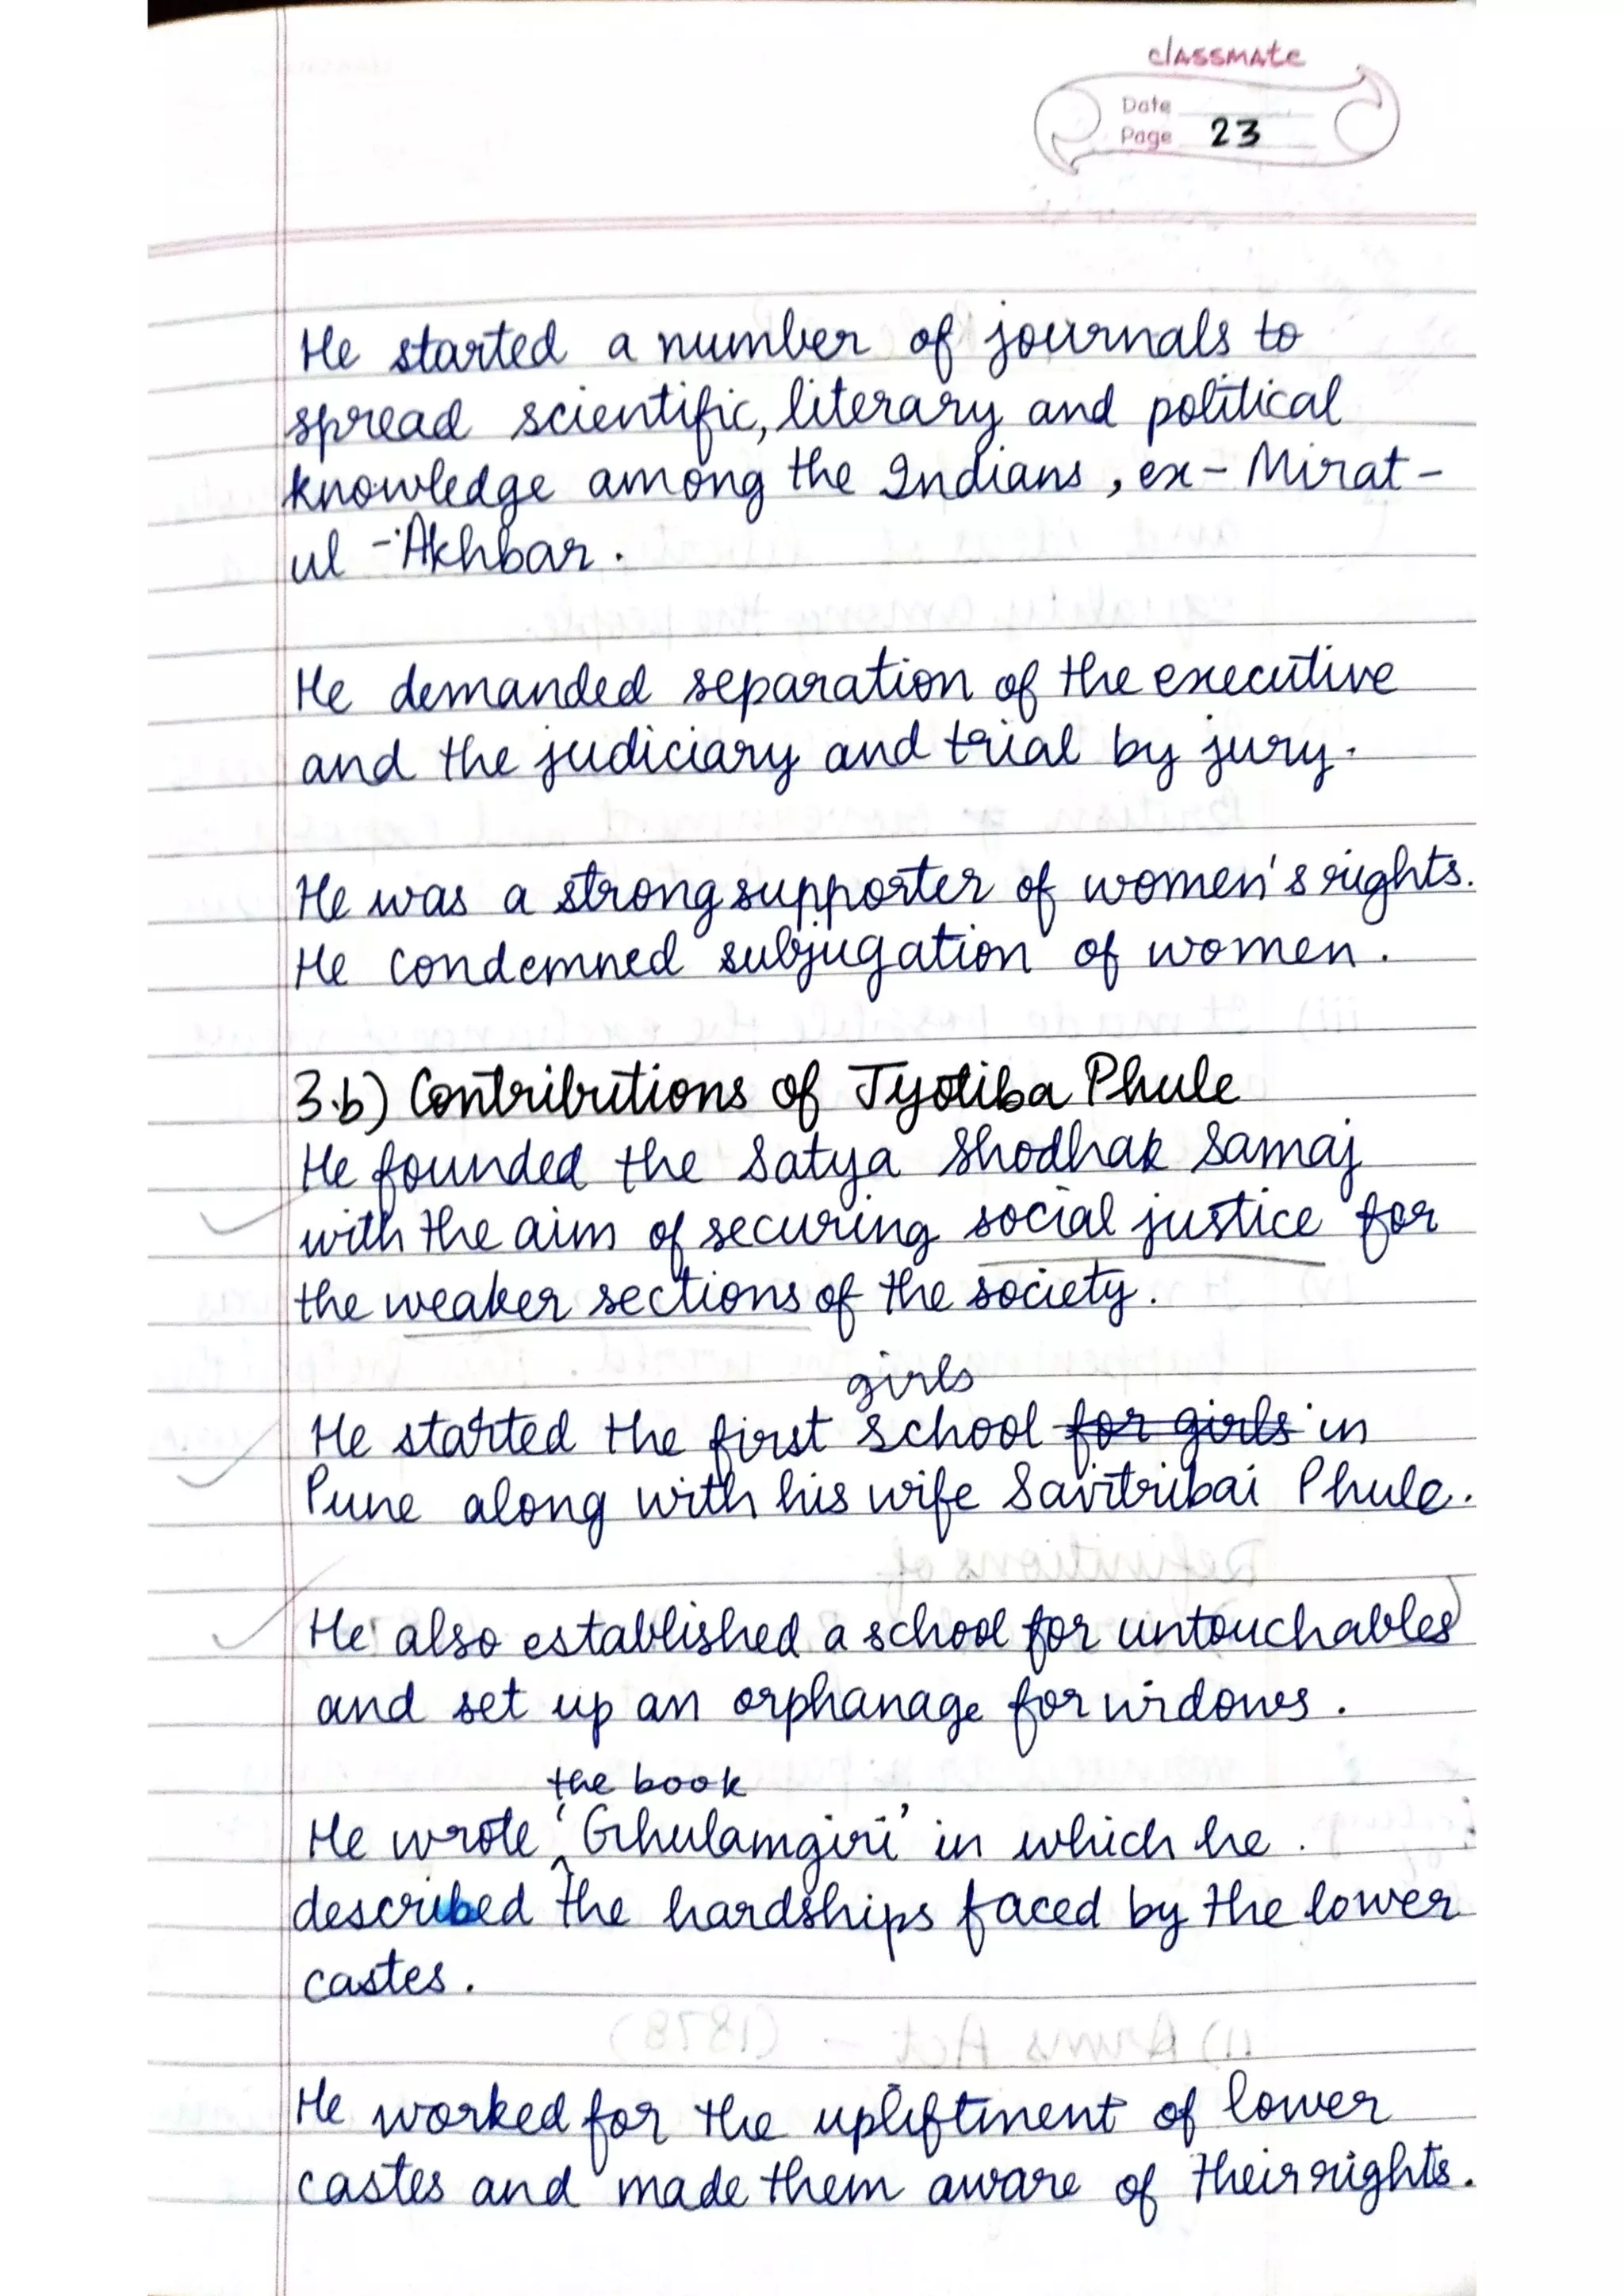 classmate
Date
Page 23
He started a number of journals to
spread scientific, literary and political
knowledge among the Indians, ex - Mirat -
ul - Akhbar.
He demanded separation of the executive
and the judiciary and trial by jury.
He was a strong supporter of women's rights.
He condemned subjugation of women.
3.b) Contributions of Jyotiba Phule
He founded the Satya Shodhak Samaj
with the aim of securing social justice for
the weaker sections of the society.
girls
He started the first school for girls in
Pune along with his wife Savitribai Phule.
He also established a school for untouchables
and set up an orphanage for widows.
the book
He wrote 'Ghulamgiri' in which he
described the hardships faced by the lower
castes.
He worked for the upliftment of lower
castes and made them aware of their rights.